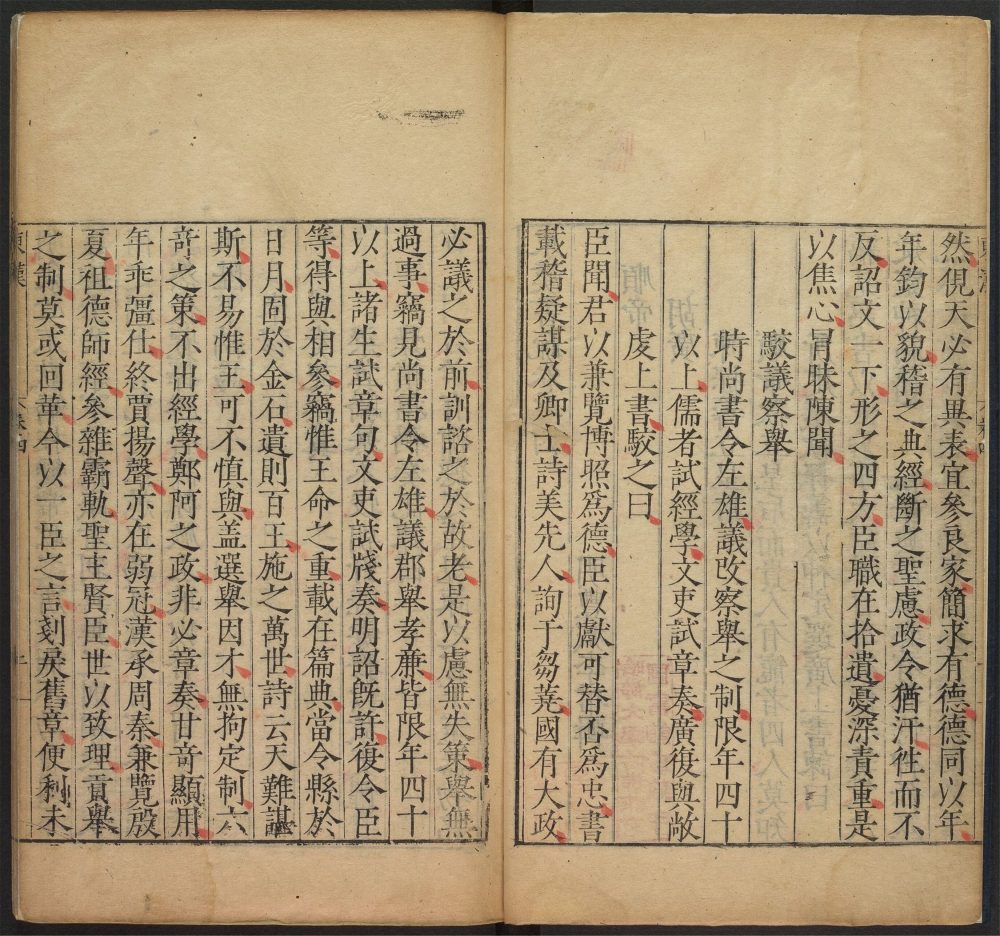 然俔天必有異表宜參良家簡求有德德同以年
年鈞以貌稽之典經斷之聖慮政令猶汗徃而不
反詔文一下形之四方臣職在拾遺憂深責重是
以焦心冐昧陳聞
駮議察舉
時尚書令左雄議改察舉之制限年四十
以上儒者試經學文吏試章奏廣復與敞
䖍上書駮之曰
臣聞君以兼覽博照爲德臣以獻可替否爲忠書
載稽疑謀及卿士詩美先人詢于芻蕘國有大政
必議之於前訓諮之於故老是以慮無失策舉無
過事竊見尚書令左雄議郡舉孝亷皆限年四十
以上諸生試章句文吏試牋奏明詔旣許復令臣
等得與相參竊惟王命之重載在篇典當令縣於
日月固於金石遺則百王施之萬世詩云天難諶
斯不易惟王可不慎與盖選舉因才無拘定制六
竒之策不出經學鄭阿之政非必章奏甘竒顯用
年乖彊仕終賈揚聲亦在弱冠漢承周秦兼覽殷
夏祖德師經參雜霸軌聖主賢臣世以致理貢舉
之制莫或回革今以一臣之言刻戾舊章便利未
東漢
卷四